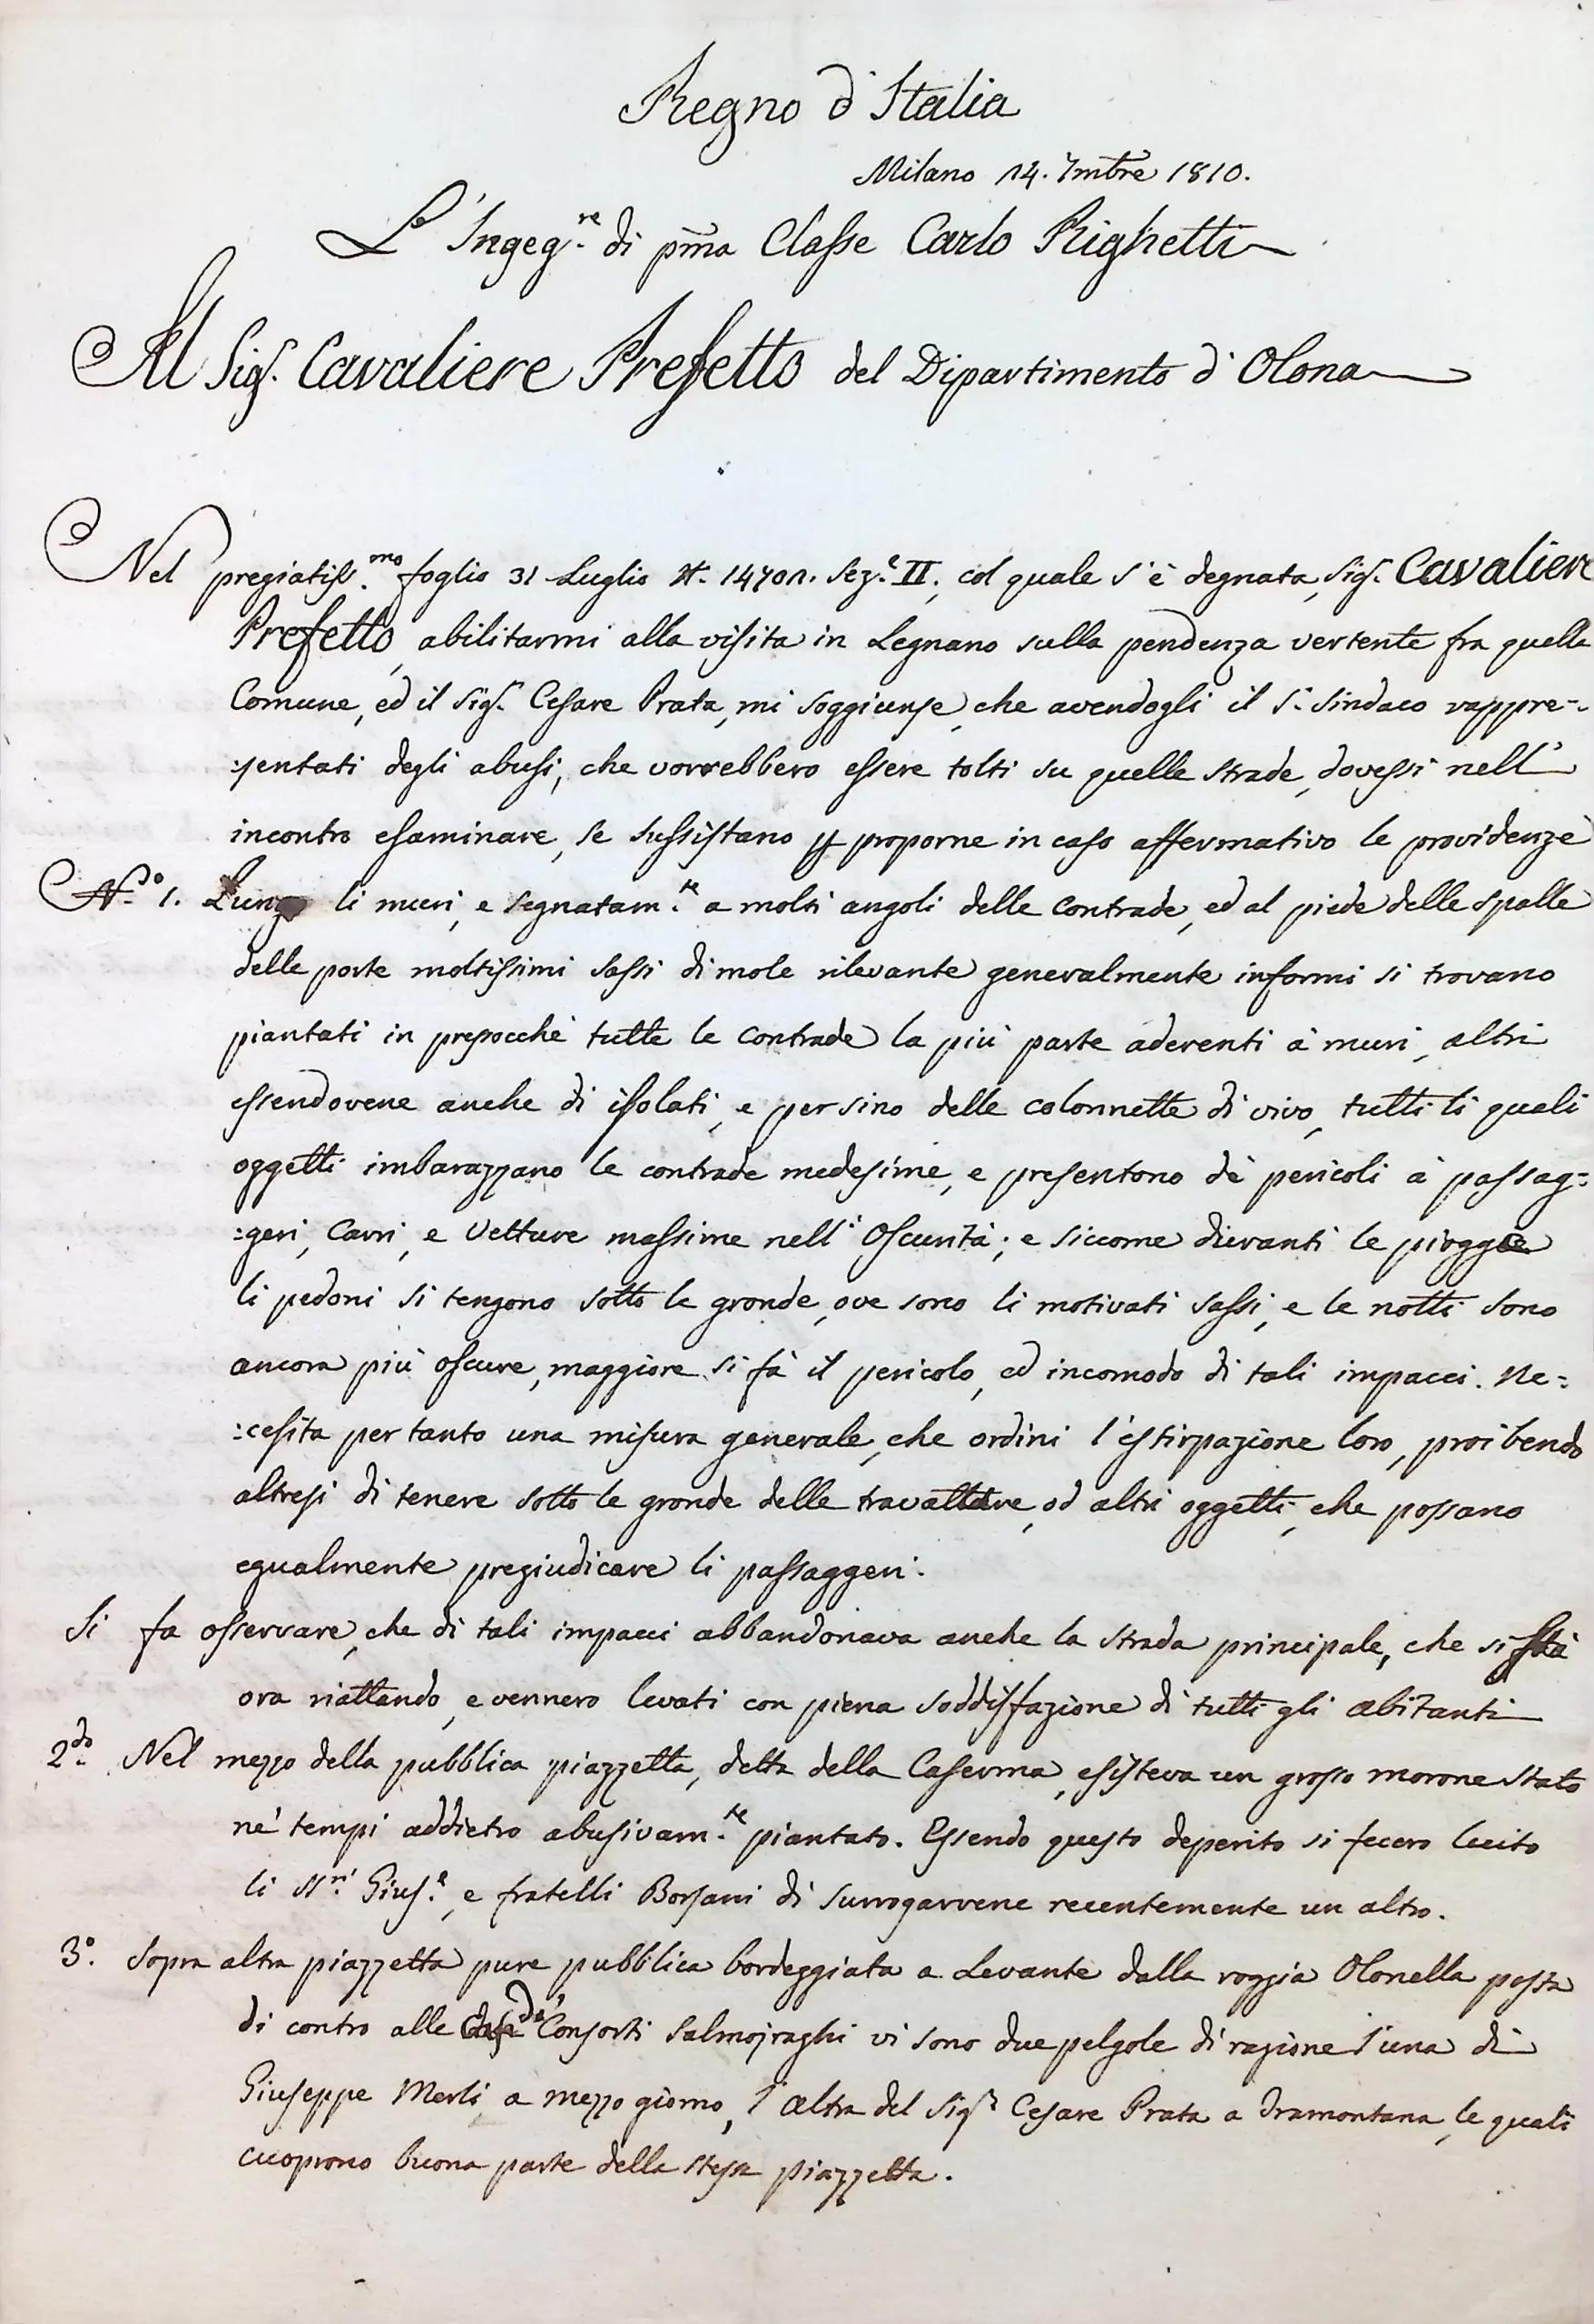 Regno d'Italia
Milano 14. 7mbre 1810.
L'Ingeg.re di pma Classe Carlo Righetti
Al Sigr. Cavaliere Prefetto del Dipartimento d'Olona
Nel pregiatiss.mo foglio 31 Luglio N. 14701. Sez.e II, col quale s'è degnata, Sigr. Cavaliere
Prefetto, abilitarmi alla visita in Legnano sulla pendenza vertente fra quella
Comune, ed il Sigr. Cesare Prata, mi soggiunse, che avendogli il Sr. Sindaco rappre=
:sentati degli abusi, che vorrebbero essere tolti su quelle strade, dovessi nell'
incontro esaminare, se sussistano p proporne in caso affermativo le providenze
N.o 1. Lungo li muri, e segnatam.te a molti angoli delle contrade, ed al piede delle spalle
delle porte moltissimi sassi di mole rilevante generalmente informi si trovano
piantati in presocchè tutte le contrade la più parte aderenti a' muri, altri
essendovene anche di isolati, e per sino delle colonnette di vivo, tutti li quali
oggetti imbarazzano le contrade medesime, e presentono de' pericoli a' passag=
:geri, Carri, e Vetture massime nell'Oscurità; e siccome duranti le pioggie
li pedoni si tengono sotto le gronde, ove sono li motivati sassi, e le notti sono
ancora più oscure, maggiore si fà il pericolo, ed incomodo di tali impacci. Ne=
:cesita per tanto una misura generale, che ordini l'estirpazione loro, proibendo
altresi di tenere sotto le gronde delle travature, od altri oggetti, che possano
egualmente pregiudicare li passaggeri.
Si fa osservare, che di tali impacci abbandonava anche la strada principale, che si stà
ora riattando, e vennero levati con piena soddisfazione di tutti gli abitanti
2.do Nel mezzo della pubblica piazzetta, detta della Caserma, esisteva un grosso morone stato
ne' tempi addietro abusivam.te piantato. Essendo questo deperito si fecero lecito
li SS.ri Gius.e, e fratelli Borsani di surrogarvene recentemente un altro.
3.o Sopra altra piazzetta pure pubblica bordeggiata a Levante dalla roggia Olonella posta
di contro alle Case de' Consorti Salmojraghi vi sono due pelgole di ragione l'una di
Giuseppe Merli a mezzo giorno, l'altra del Sigr. Cesare Prata a Tramontana, le quali
cuoprono buona parte della stessa piazzetta.